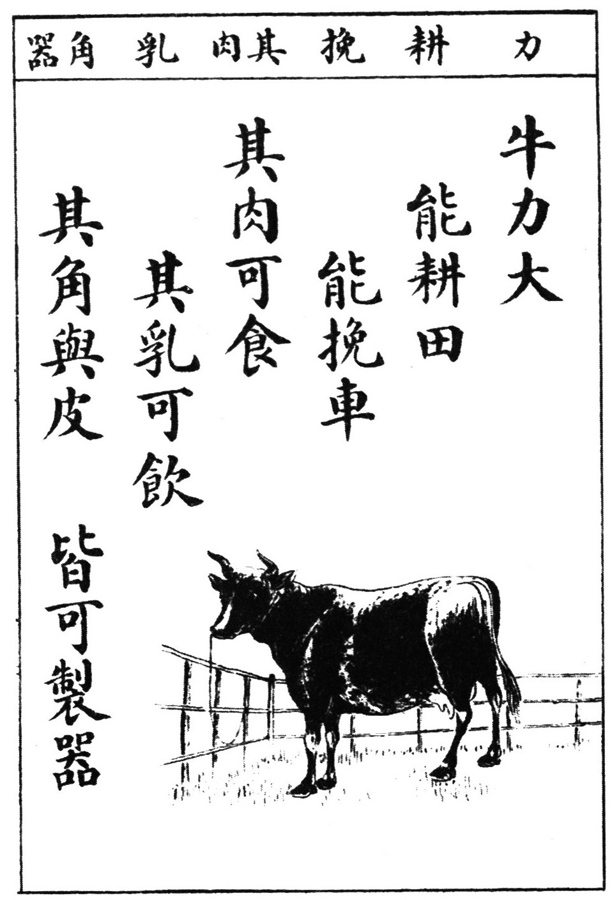 力 耕 挽 其肉 乳 角器
牛力大
能耕田
能挽車
其肉可食
其乳可飲
其角與皮 皆可製器